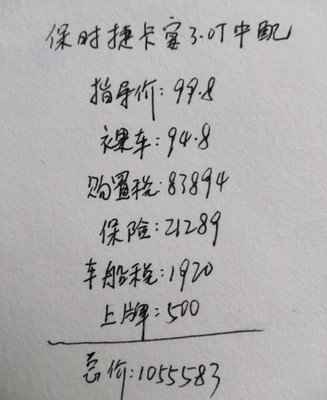 保时捷卡宴3.0T中配
指导价:99.8
裸车:94.8
购置税:83894
保险:21289
车船税:1920
上牌:500
总价:1055583